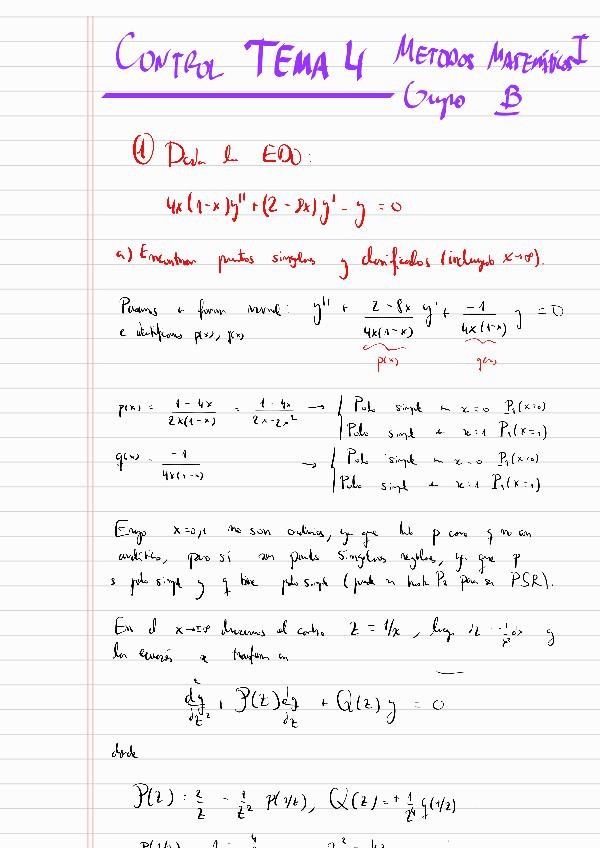 CONTROL TEMA 4 METODOS MATEMÁTICOS I
Grupo B
① Dada la EDO:
4x(1-x)y'' + (2-8x)y' - y = 0
a) Encontrar puntos singulares y clasificarlos (incluyendo x→∞).
Pasamos a forma normal: y'' + (2-8x)/(4x(1-x)) y' + (-1)/(4x(1-x)) y = 0
e identificamos p(x), q(x)
p(x) q(x)
p(x) = (1-4x)/(2x(1-x)) = (1-4x)/(2x-2x²) → Polo simple en x=0 P₁(x=0)
Polo simple en x=1 P₁(x=1)
q(x) = -1/(4x(1-x)) → Polo simple en x=0 P₁(x=0)
Polo simple en x=1 P₁(x=1)
Ergo x=0,1 no son ordinarios, ya que tanto p como q no son
analíticos, pero sí son puntos singulares regulares, ya que p
es polo simple y q tiene polo simple (puede ser hasta P₂ para ser PSR).
En el x→±∞ hacemos el cambio z = 1/x, luego dz = -1/x² dx y
la ecuación se transforma en
d²y/dz² + P(z) dy/dz + Q(z) y = 0
donde
P(z) = 2/z - 1/z² p(1/z), Q(z) = + 1/z⁴ q(1/z)